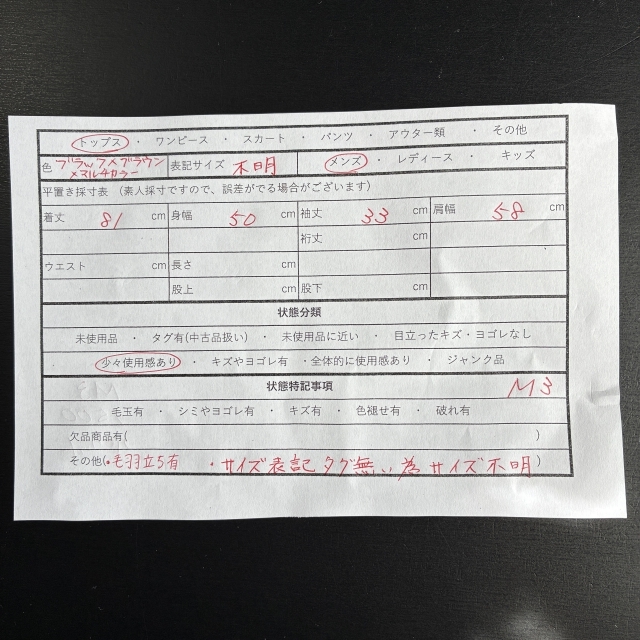 トップス ・ ワンピース ・ スカート ・ パンツ ・ アウター類 ・ その他
色 ブラック×ブラウン ×マルチカラー 表記サイズ 不明 メンズ ・ レディース ・ キッズ
平置き採寸表 (素人採寸ですので、誤差がでる場合がございます)
着丈 81 cm 身幅 50 cm 袖丈 33 cm 肩幅 58 cm
裄丈 cm
ウエスト cm 長さ cm
股上 cm 股下 cm
状態分類
未使用品 ・ タグ有(中古品扱い) ・ 未使用品に近い ・ 目立ったキズ・ヨゴレなし
少々使用感あり ・ キズやヨゴレ有 ・全体的に使用感あり ・ ジャンク品
状態特記事項 M3
毛玉有 ・ シミやヨゴレ有 ・ キズ有 ・ 色褪せ有 ・ 破れ有
欠品商品有( )
その他(・毛羽立ち有 ・サイズ表記タグ無い為サイズ不明)